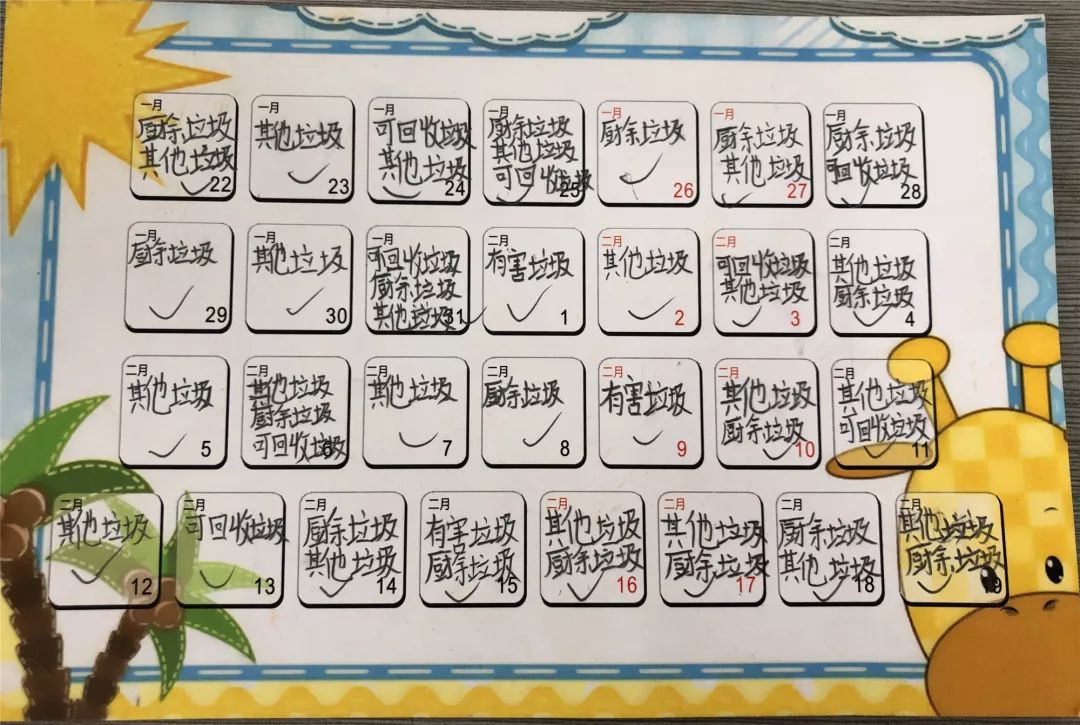 一月
厨余垃圾
其他垃圾
22
一月
其他垃圾
23
一月
可回收垃圾
其他垃圾
24
一月
厨余垃圾
其他垃圾
可回收垃圾
25
一月
厨余垃圾
26
一月
厨余垃圾
其他垃圾
27
一月
厨余垃圾
可回收垃圾
28
一月
厨余垃圾
29
一月
其他垃圾
30
一月
可回收垃圾
厨余垃圾
其他垃圾
31
二月
有害垃圾
1
二月
其他垃圾
2
二月
可回收垃圾
其他垃圾
3
二月
其他垃圾
厨余垃圾
4
二月
其他垃圾
5
二月
其他垃圾
厨余垃圾
可回收垃圾
6
二月
其他垃圾
7
二月
厨余垃圾
8
二月
有害垃圾
9
二月
其他垃圾
厨余垃圾
10
二月
其他垃圾
可回收垃圾
11
二月
其他垃圾
12
二月
可回收垃圾
13
二月
厨余垃圾
其他垃圾
14
二月
有害垃圾
厨余垃圾
15
二月
其他垃圾
厨余垃圾
16
二月
其他垃圾
厨余垃圾
17
二月
厨余垃圾
其他垃圾
18
二月
其他垃圾
厨余垃圾
19